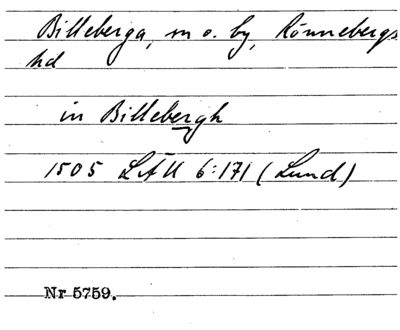 Billeberga, m o. by, Rönnebergs
hd
in Billebergh
1505 LÄU 6:171 (Lund)
Nr 5759.